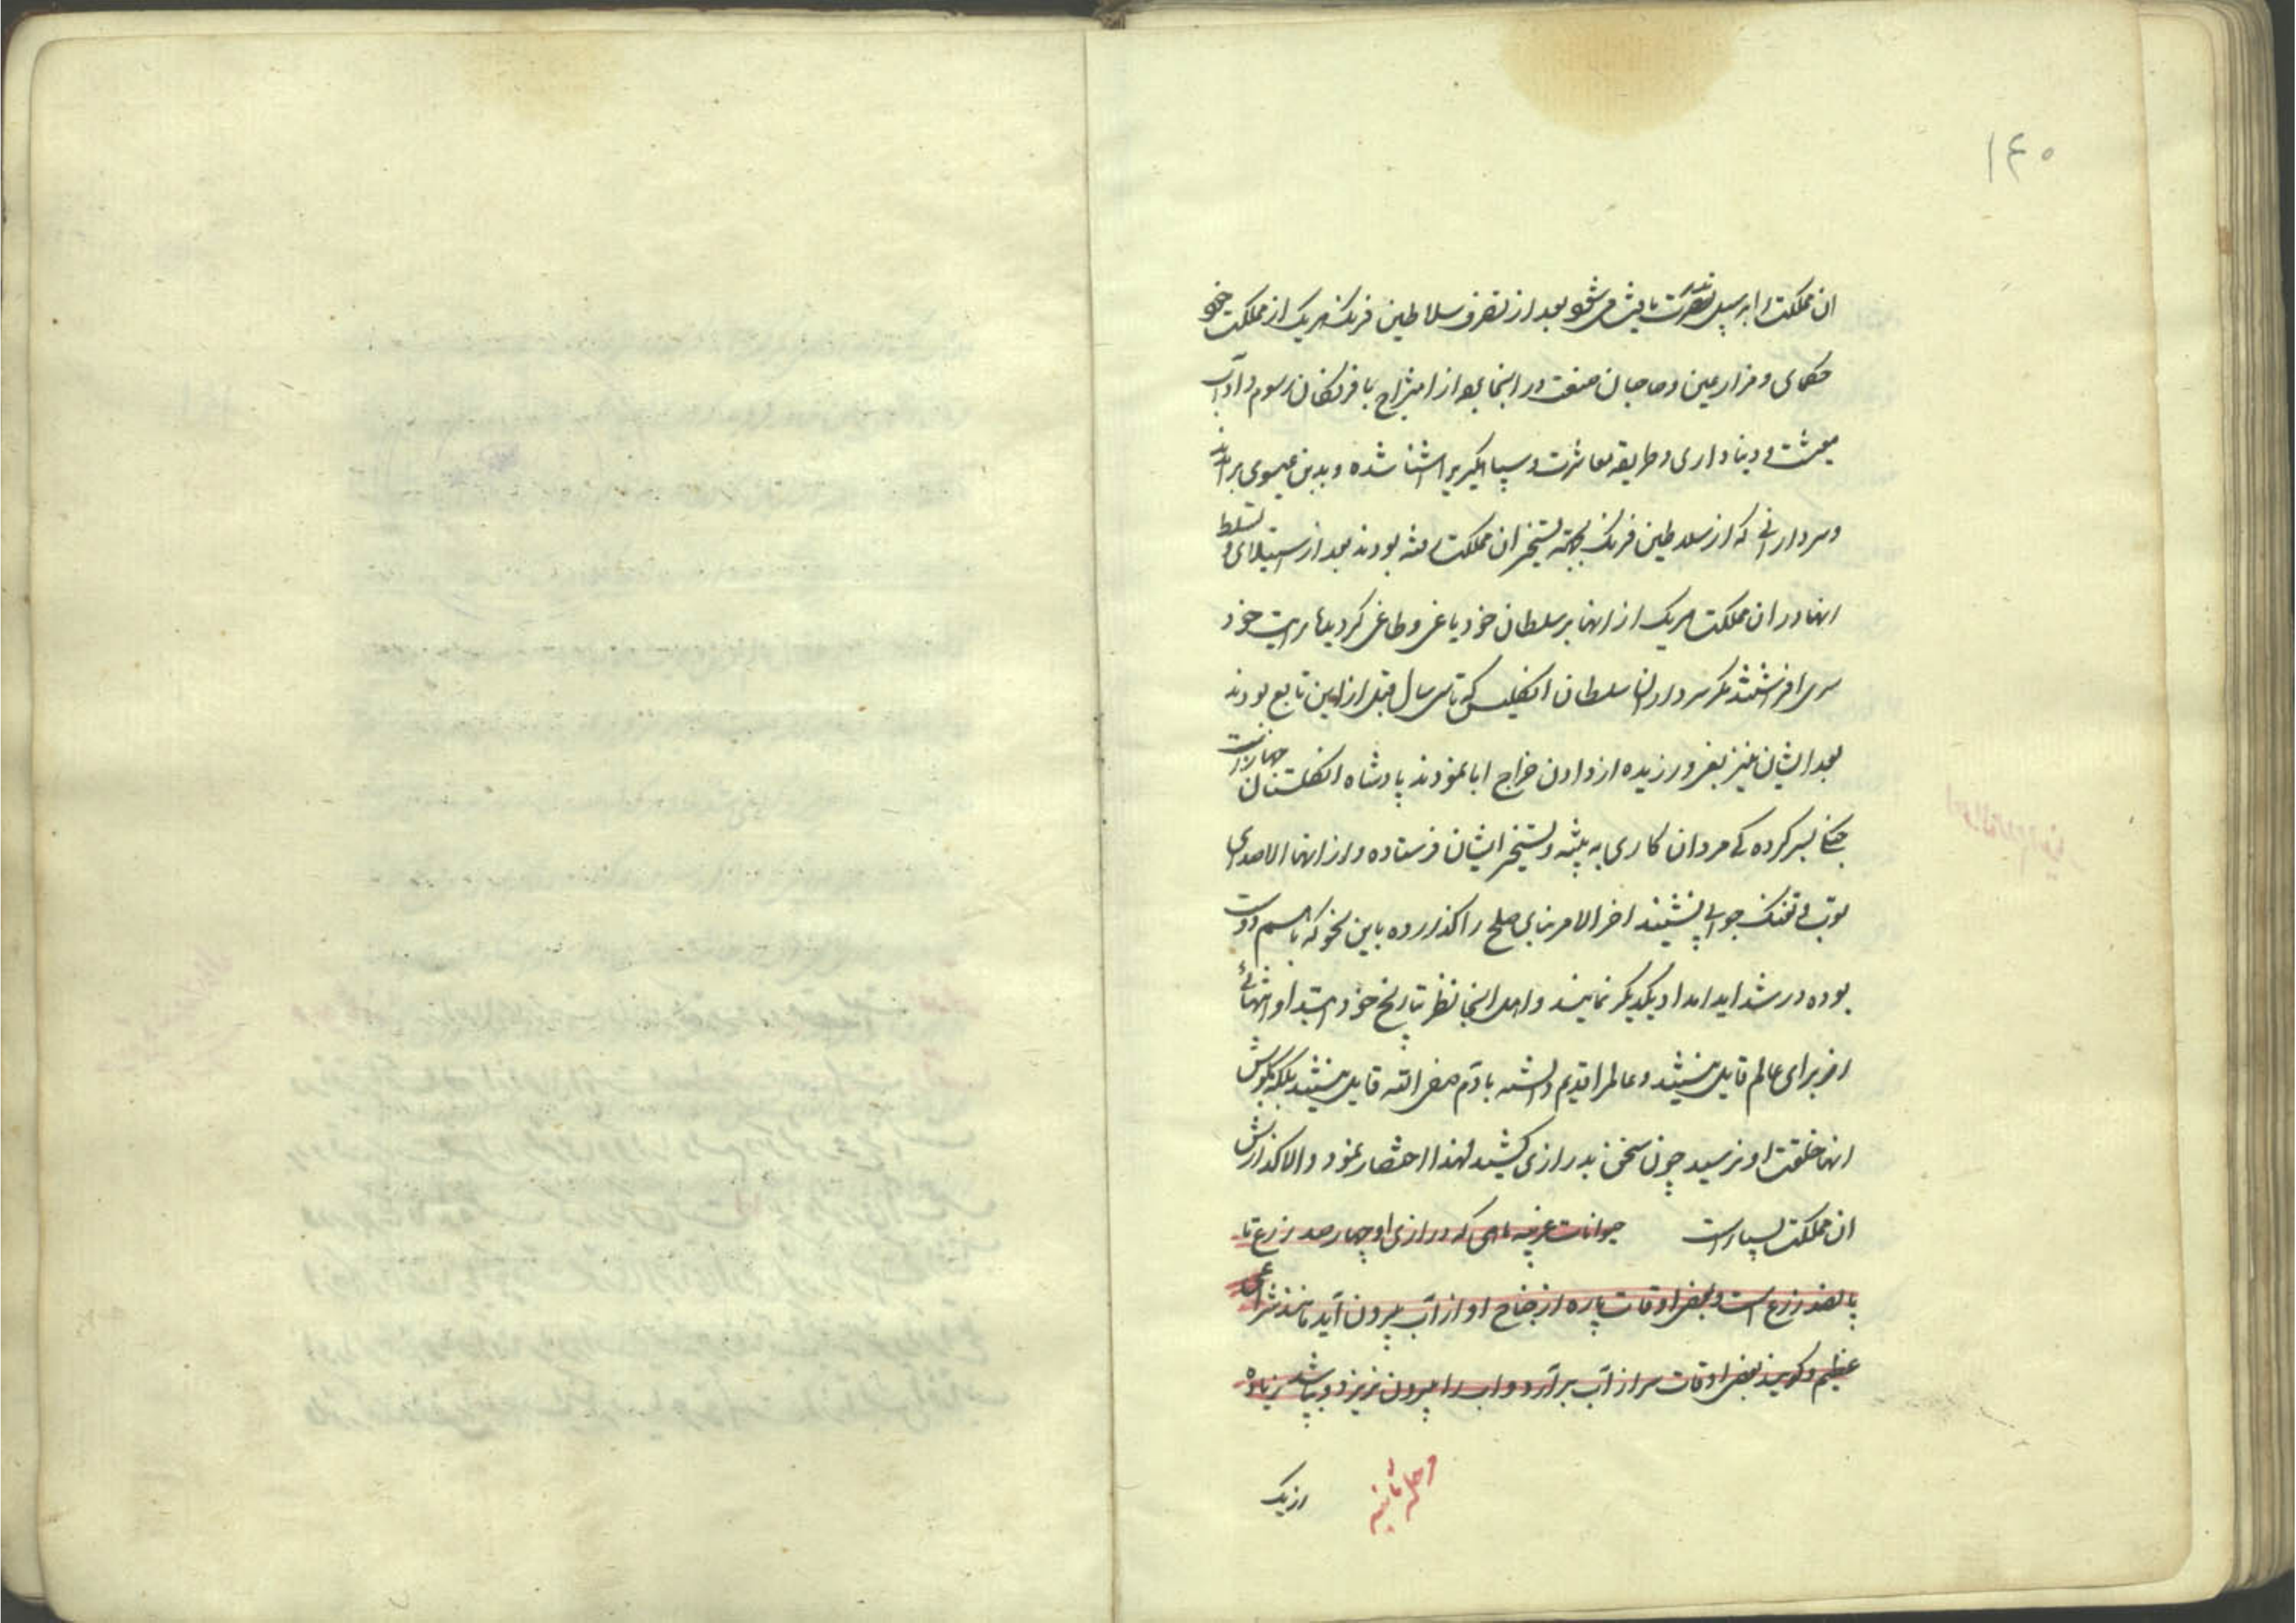 ۱۴۰
ان مملکت را به سبیل تصرف سلاطین فرنک هریک از مملکت خود
حکمای و مزارعین و صاحبان صنعت در اینجا بعد از امتزاج با فرنکان رسوم و آداب
معیشت و دنیاداری و طریقه معاشرت و سپاهگیری آشنا شده و بدین عیسوی برآمدند
و سردارانی که از سلاطین فرنک بجهته تسخیر ان مملکت رفته بودند بعد از استیلای و تسلط
انها در ان مملکت هریک از انها بر سلطان خود یاغی و طاغی کردیده رایت خود
سری افراشتند مکر سرداران سلطان انکلیس که تا سی سال قبل از این تابع بودند
بعد ایشان نیز تفرد ورزیده از دادن خراج ابا نمودند پادشاه انکلستان جهازات
جنکی بسرکرده کی مردان کاری به تنبیه و تسخیر ایشان فرستاده و از انها الا صدای
توپ و تفنک جوابی نشنیدند اخر الامر بنای صلح را کذارده باین نحو که باهم دوست
بوده در شداید امداد یکدیکر نمایند و اهل اینجا نظر بتاریخ خود ابتدا و انتهائی
از برای عالم قایل نیستند و عالم را قدیم دانسته بادم صفی الله قایل نیستند بلکه بکوش
انها خلقت او نرسیده چون سخن بدرازی کشید لهذا اختصار نمود والا کذارش
ان مملکت بسیار است حیوانات غریبه ماهی که درازی او چهارصد زرع تا
پانصد زرع است و بعضی اوقات پاره از جناح او از آب بیرون آید مانند شراعی
عظیم و کویند بعضی اوقات سر از آب برآرد و اب را بیرون ریزد و بپاشد زیاده
از یک